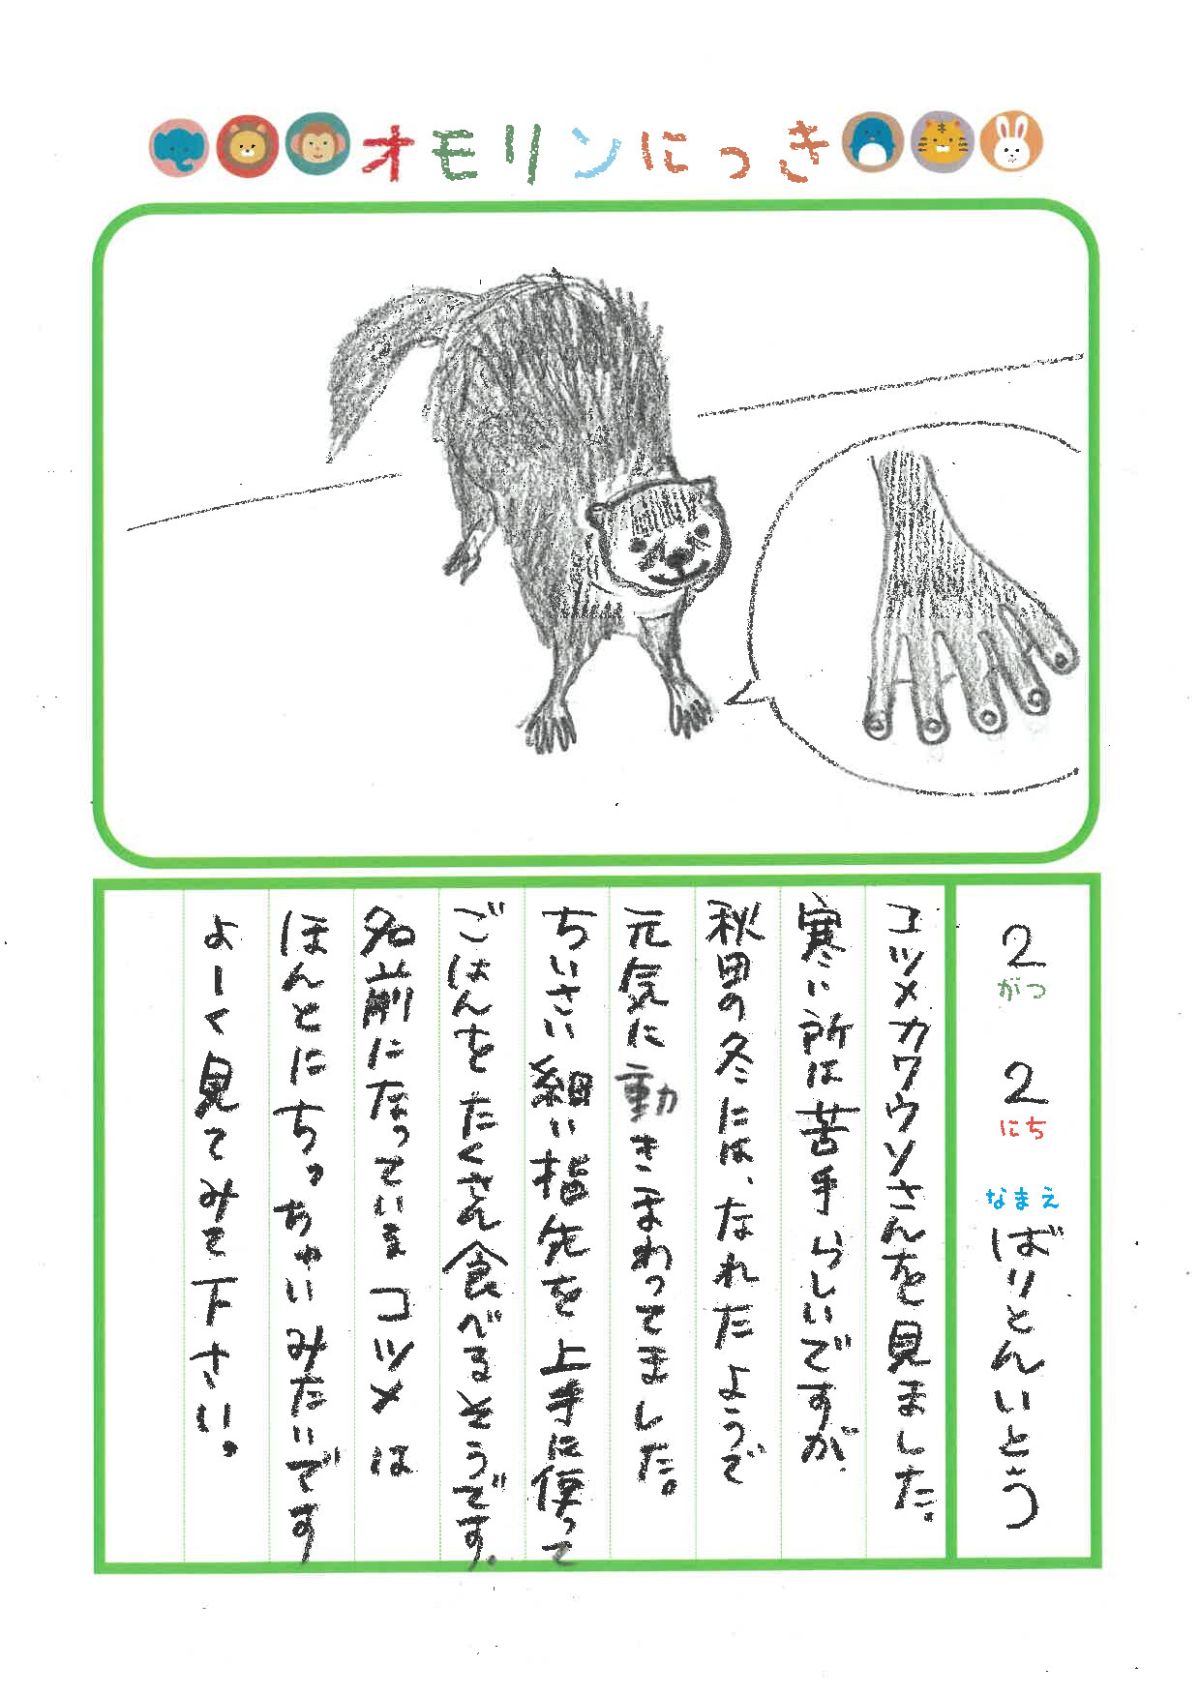 オモリンにっき
2がつ 2にち なまえ ばりとんいとう
コツメカワウソさんを見ました。
寒い所は苦手らしいですが、
秋田の冬には、なれたようで
元気に動きまわってました。
ちいさい細い指先を上手に使って
ごはんをたくさん食べるそうです。
名前になっているコツメは
ほんとにちっちゃいみたいです
よーく見てみて下さい。